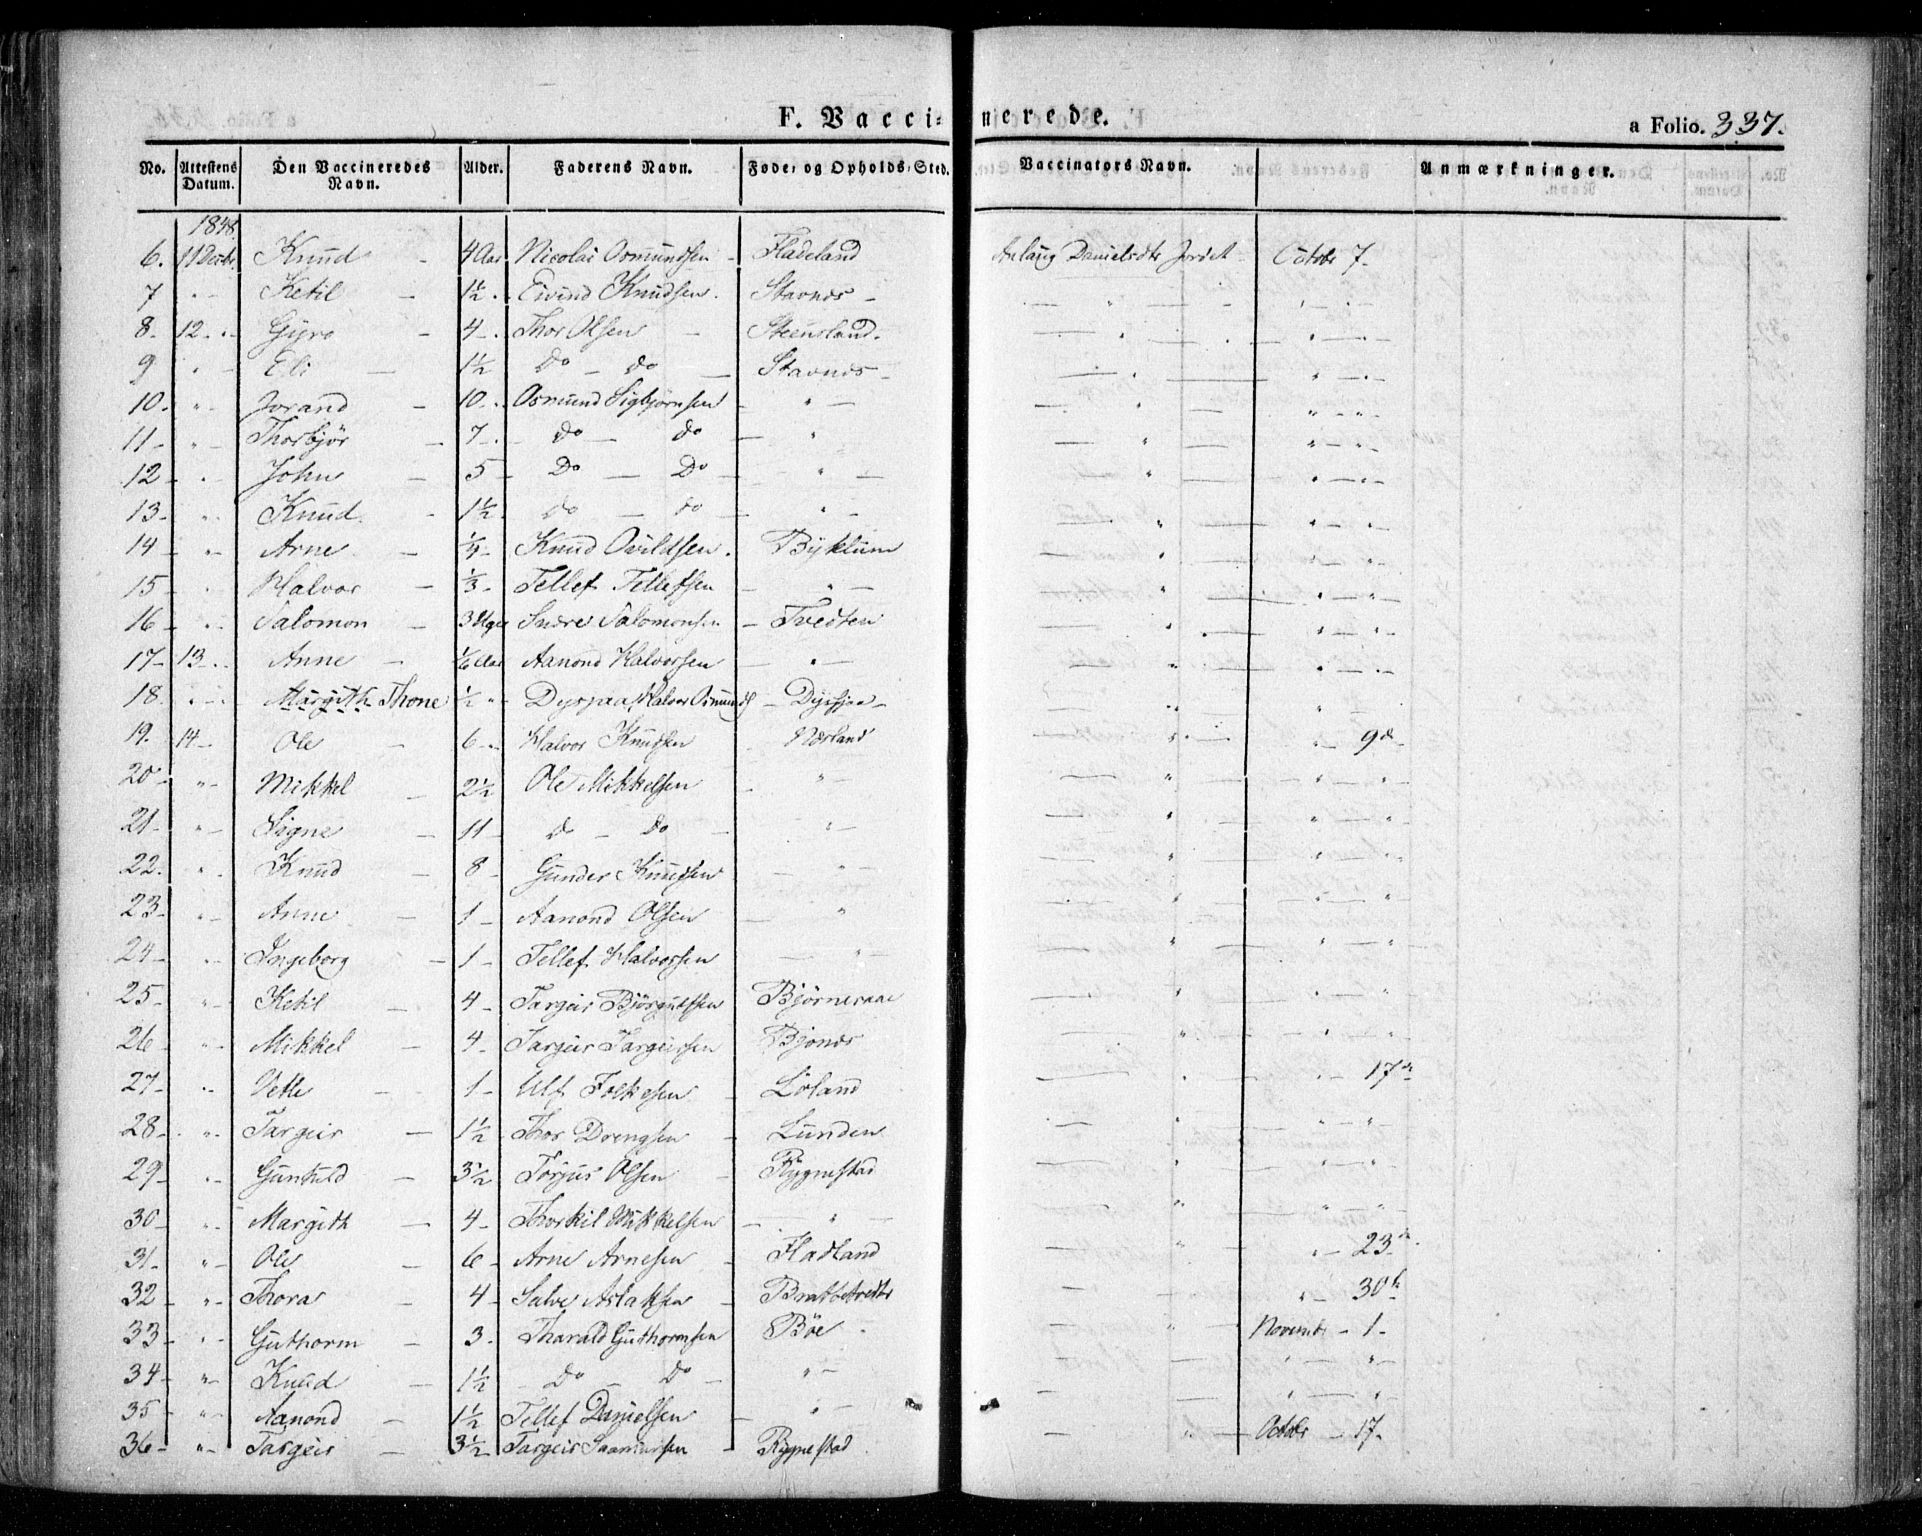 F. Vaccinerede.
a Folio. 337.
No. Attestens Datum. Den Vaccineredes Navn. Alder. Faderens Navn. Føde- og Opholds-Sted. Vaccinators Navn. Anmærkninger.
1848
6. 11 Decbr. Knud - 4 Aar Nicolai Osmundsen - Fladeland Anlaug Danielsdtr Jordet October 7.
7 " - Ketil - 1½ . Eivind Knudsen. Stavnes - " " - " -
8. 12 . . Gyro - 4 - . Thor Olsen - Steensland. " " - " -
9 " - Eli - 1½ Do - do - Stavnes - " " - " -
10. " - Jorand - 10 . . Osmund Sigbjørnsen - " - " " - " -
11 - " - Thorbjør - 7 - . - do - do - " " " - " -
12 - . Johns - 5 - Do - Do - " - " " - " -
13. " - Knud. - 1½ - do - do - " - " " - " -
14 - " - Arne. - ¼ - Knud Ovildsen. Byklum " " - " -
15 - . Halvor - ⅓ - Tellef Tellefsen - " - " " - " -
16 - " - Salomon - 3 Uger Sndre Salomonsen - Tvedten " " - " -
17 - 13 . . Anne - ⅙ Aar Aanond Halvorsen - " - " " - " -
18. " - Margith Thone ½ " - Dysjaa, Halvor Osmunds - Dysjaa - " " - " -
19. 14 - Ole - 6 - . Halvor Knudsen Nærland " " - 9de -
20 - " - Mikkel - 2½ Ole Mikkelsen - " - " " - " -
21 - " - Signe - 11 - do - do - " - " " - " -
22. " . Knud - 8 - Gunder Knudsen - " - " " - " -
23 - " - Anne - 1 - Aanond Olsen - " " " - " -
24 - " - Ingeborg - 1 - Tellef Halvorsen - " - " " - " -
25 - " - Ketil - 4 - Targeir Bjørgulfsen Bjørneraae " " - " -
26 - " - Mikkel - 4 - Targeir Targeirsen Bjones " " - " -
27 - " Vetle - 1 - Ulf Folkesen - Löland " " - 17de
28 - " - Targeir - 1½ - Thor Drengsen - Lunden " " - " -
29 - " - Gunhuld - 3½ Torjus Olsen - Rygnestad " " - " -
30 - " - Margith - 4 - Thorkil Mikkelsen - " - " " - " -
31 - " - Ole - 6 - Arne Arnesen - Fladland " " - 23de
32 - " - Thora - 4 - Salve Aslaksen - Brattetvedte " " - 30te
33 - " - Guthorm - 3. Tharald Guthormsen Böe " Novembr - 1 -
34 - " - Knud - 1½ - Do - Do - " - " " - " -
35 - " - Aanond - 1½ - Tellef Danielsen - " - " " - " -
36 - " - Targeir - 3½ - Targeir Saamundsen - Rygnestad - " Octobr - 17 -